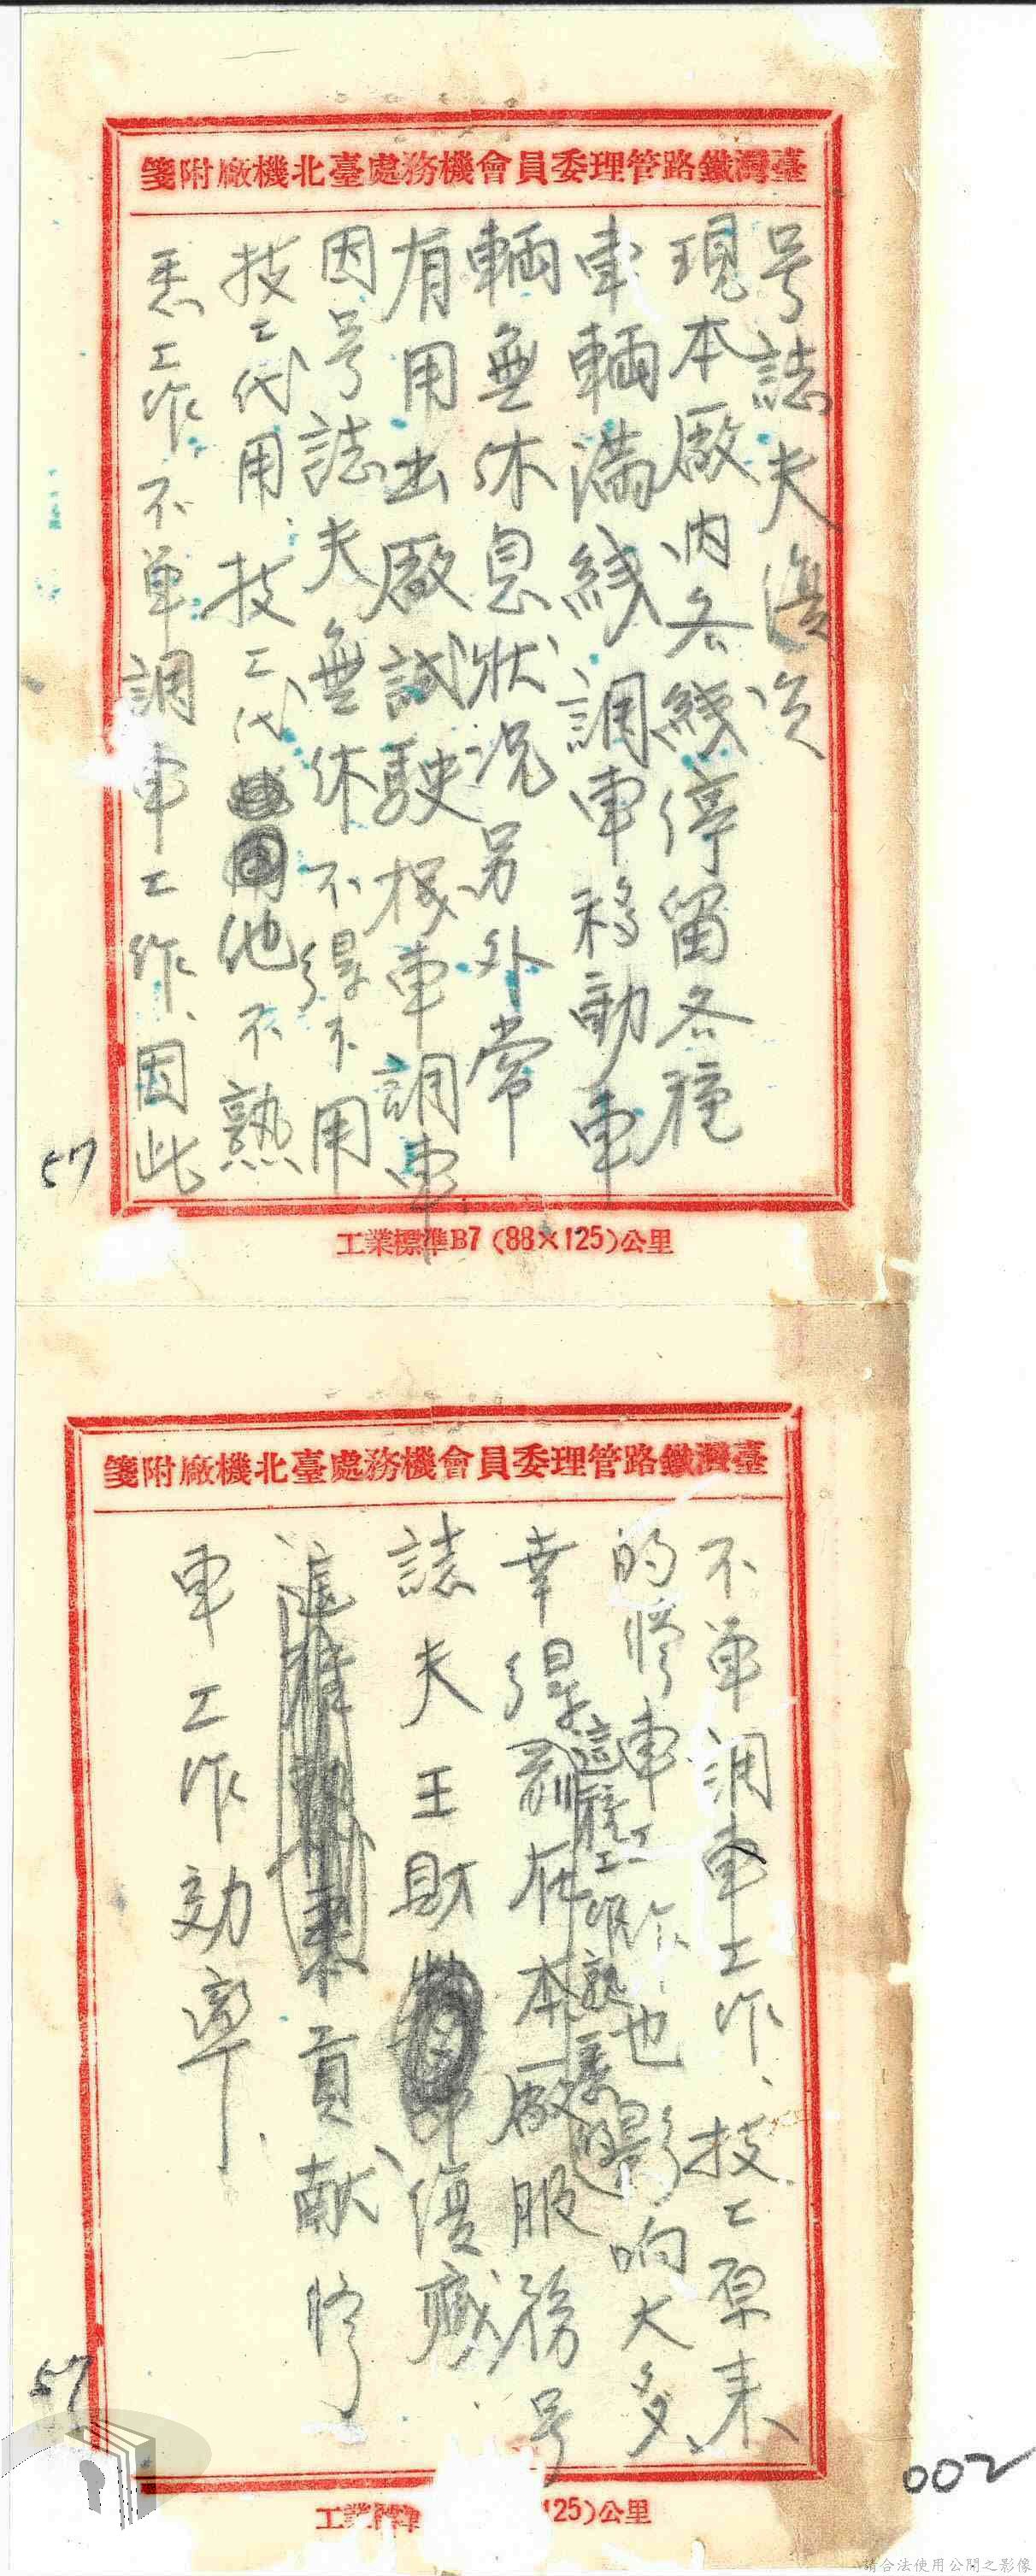 臺灣鐵路管理委員會機務處臺北機廠附箋
号誌夫復次
現本廠内各綫停留各種
車輛満綫、調車移動車
輛無休息狀况另外常
有用出廠試駛機車調車
因号誌夫無休不得不用
技工代用、技工代他不熟
悉工作不單調車工作、因此
57
工業標準B7 (88×125)公里
臺灣鐵路管理委員會機務處臺北機廠附箋
不單調車工作、技工原来
的修車工作也影响大多
這種工作熟悉的
幸得前在本廠服務号
誌夫王財 復職
貢献修
車工作効率.
57
工業標準 125)公里
002
請合法使用公開之影像